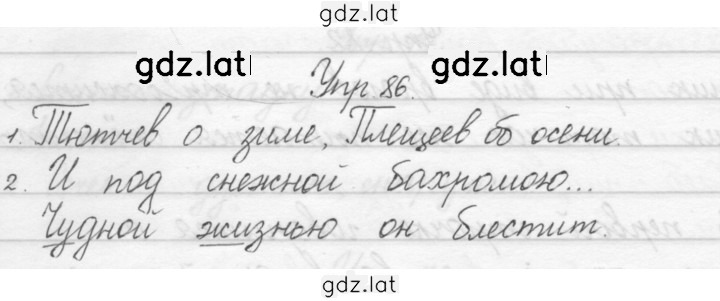 gdz.lat
gdz.lat Упр 86. gdz.lat
1. Тютчев о зиме, Плещеев об осени.
2. И под снежной бахромою...
Чудной жизнью он блестит.
gdz.lat